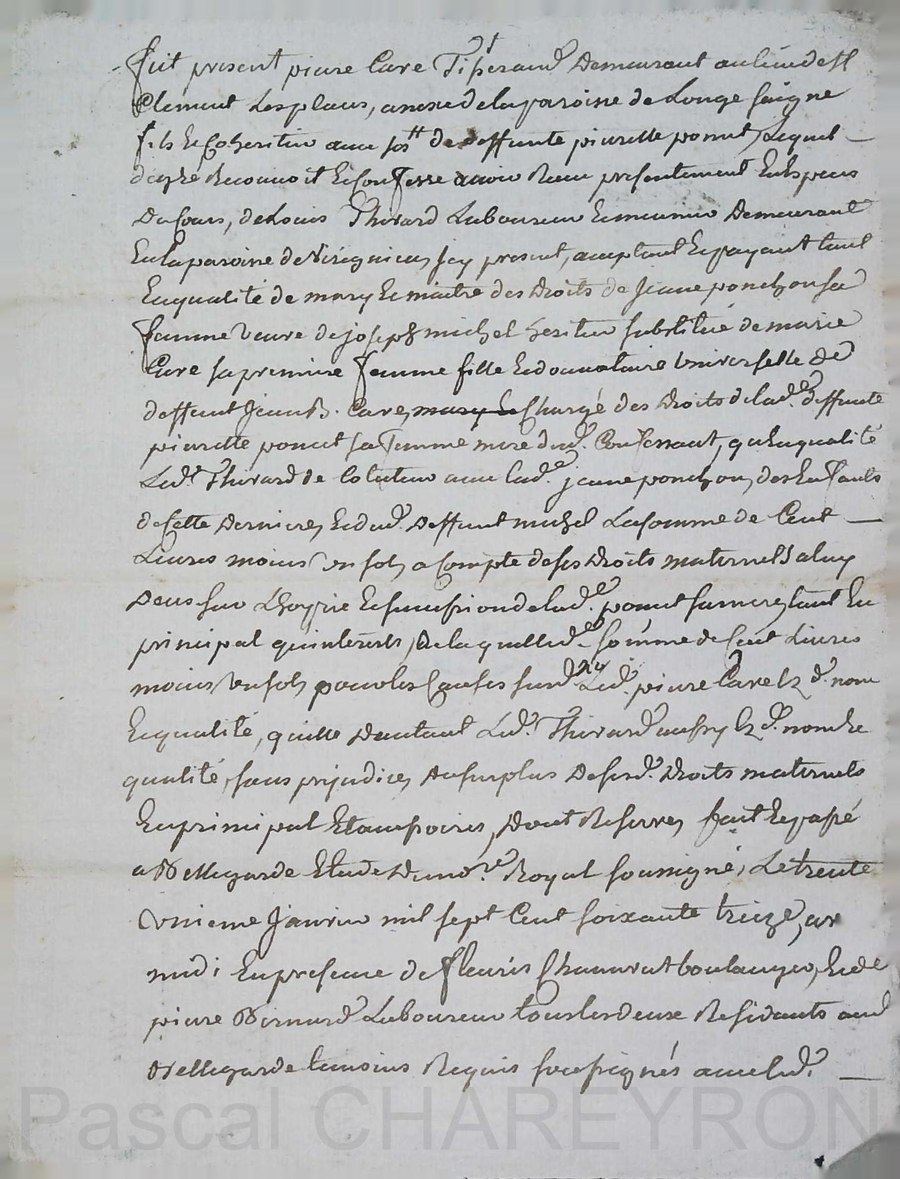 fut present pierre Care Tisserand Demeurant au lieu de st
Clement Lesplaces, annexe de la paroisse de Longe saigne
fils Et Coheritier avec jstt de deffunte pierrette ponnet Lequel
de gré Reconnoit Et Confesse avoir Receu presentement En Especes
Du Cours, de Louis Thivard Laboureur Demeurant
En la paroisse de Virigneux, jcy present, acceptant Et payant tant
En qualité de mary Et maitre des Droits de jeanne ponchon sa
femme veuve de joseph michel heritier substitué de marie
Care sa premiere femme fille Et donnataire universelle de
deffunt jean B. Care, mary Et Chargé des Droits de lad.e deffunte
pierrette ponnet sa femme mere dud.t Confessant, qu'en qualité
Led.t Thivard de Cotuteur avec lad.e jeanne ponchon, des Enfants
de Cette Derniere, Et dud.t Deffunt michel La somme de Cent
Livres moins un sols a Compte de ses Droits maternels a luy
Deus sur L'hoyrie Et succession de lad.e ponnet sa mere, tant En
principal qu'interets, De laquelle d.e somme de Cent Livres
moins un sols pour les Causes susd. Led.t pierre Care Es d.t nom
Et qualité, quitte Dautant Led.t Thivard aussy Es d.t nom Et
qualité, sans prejudice, Au surplus De sesd.t Droits maternels
En principal Et accessoires, Dont Reserve, fait Et passé
a Bellegarde Etude Du no.re Royal soussigné, Le trente
unieme Janvier mil sept Cent soixante treize, av
midi En presence de fleuris Chanavat boulanger, Et de
pierre Bernard Laboureur tous les deux Residants aud
Bellegarde temoins Requis soussignés avec led.t
Pascal CHAREYRON